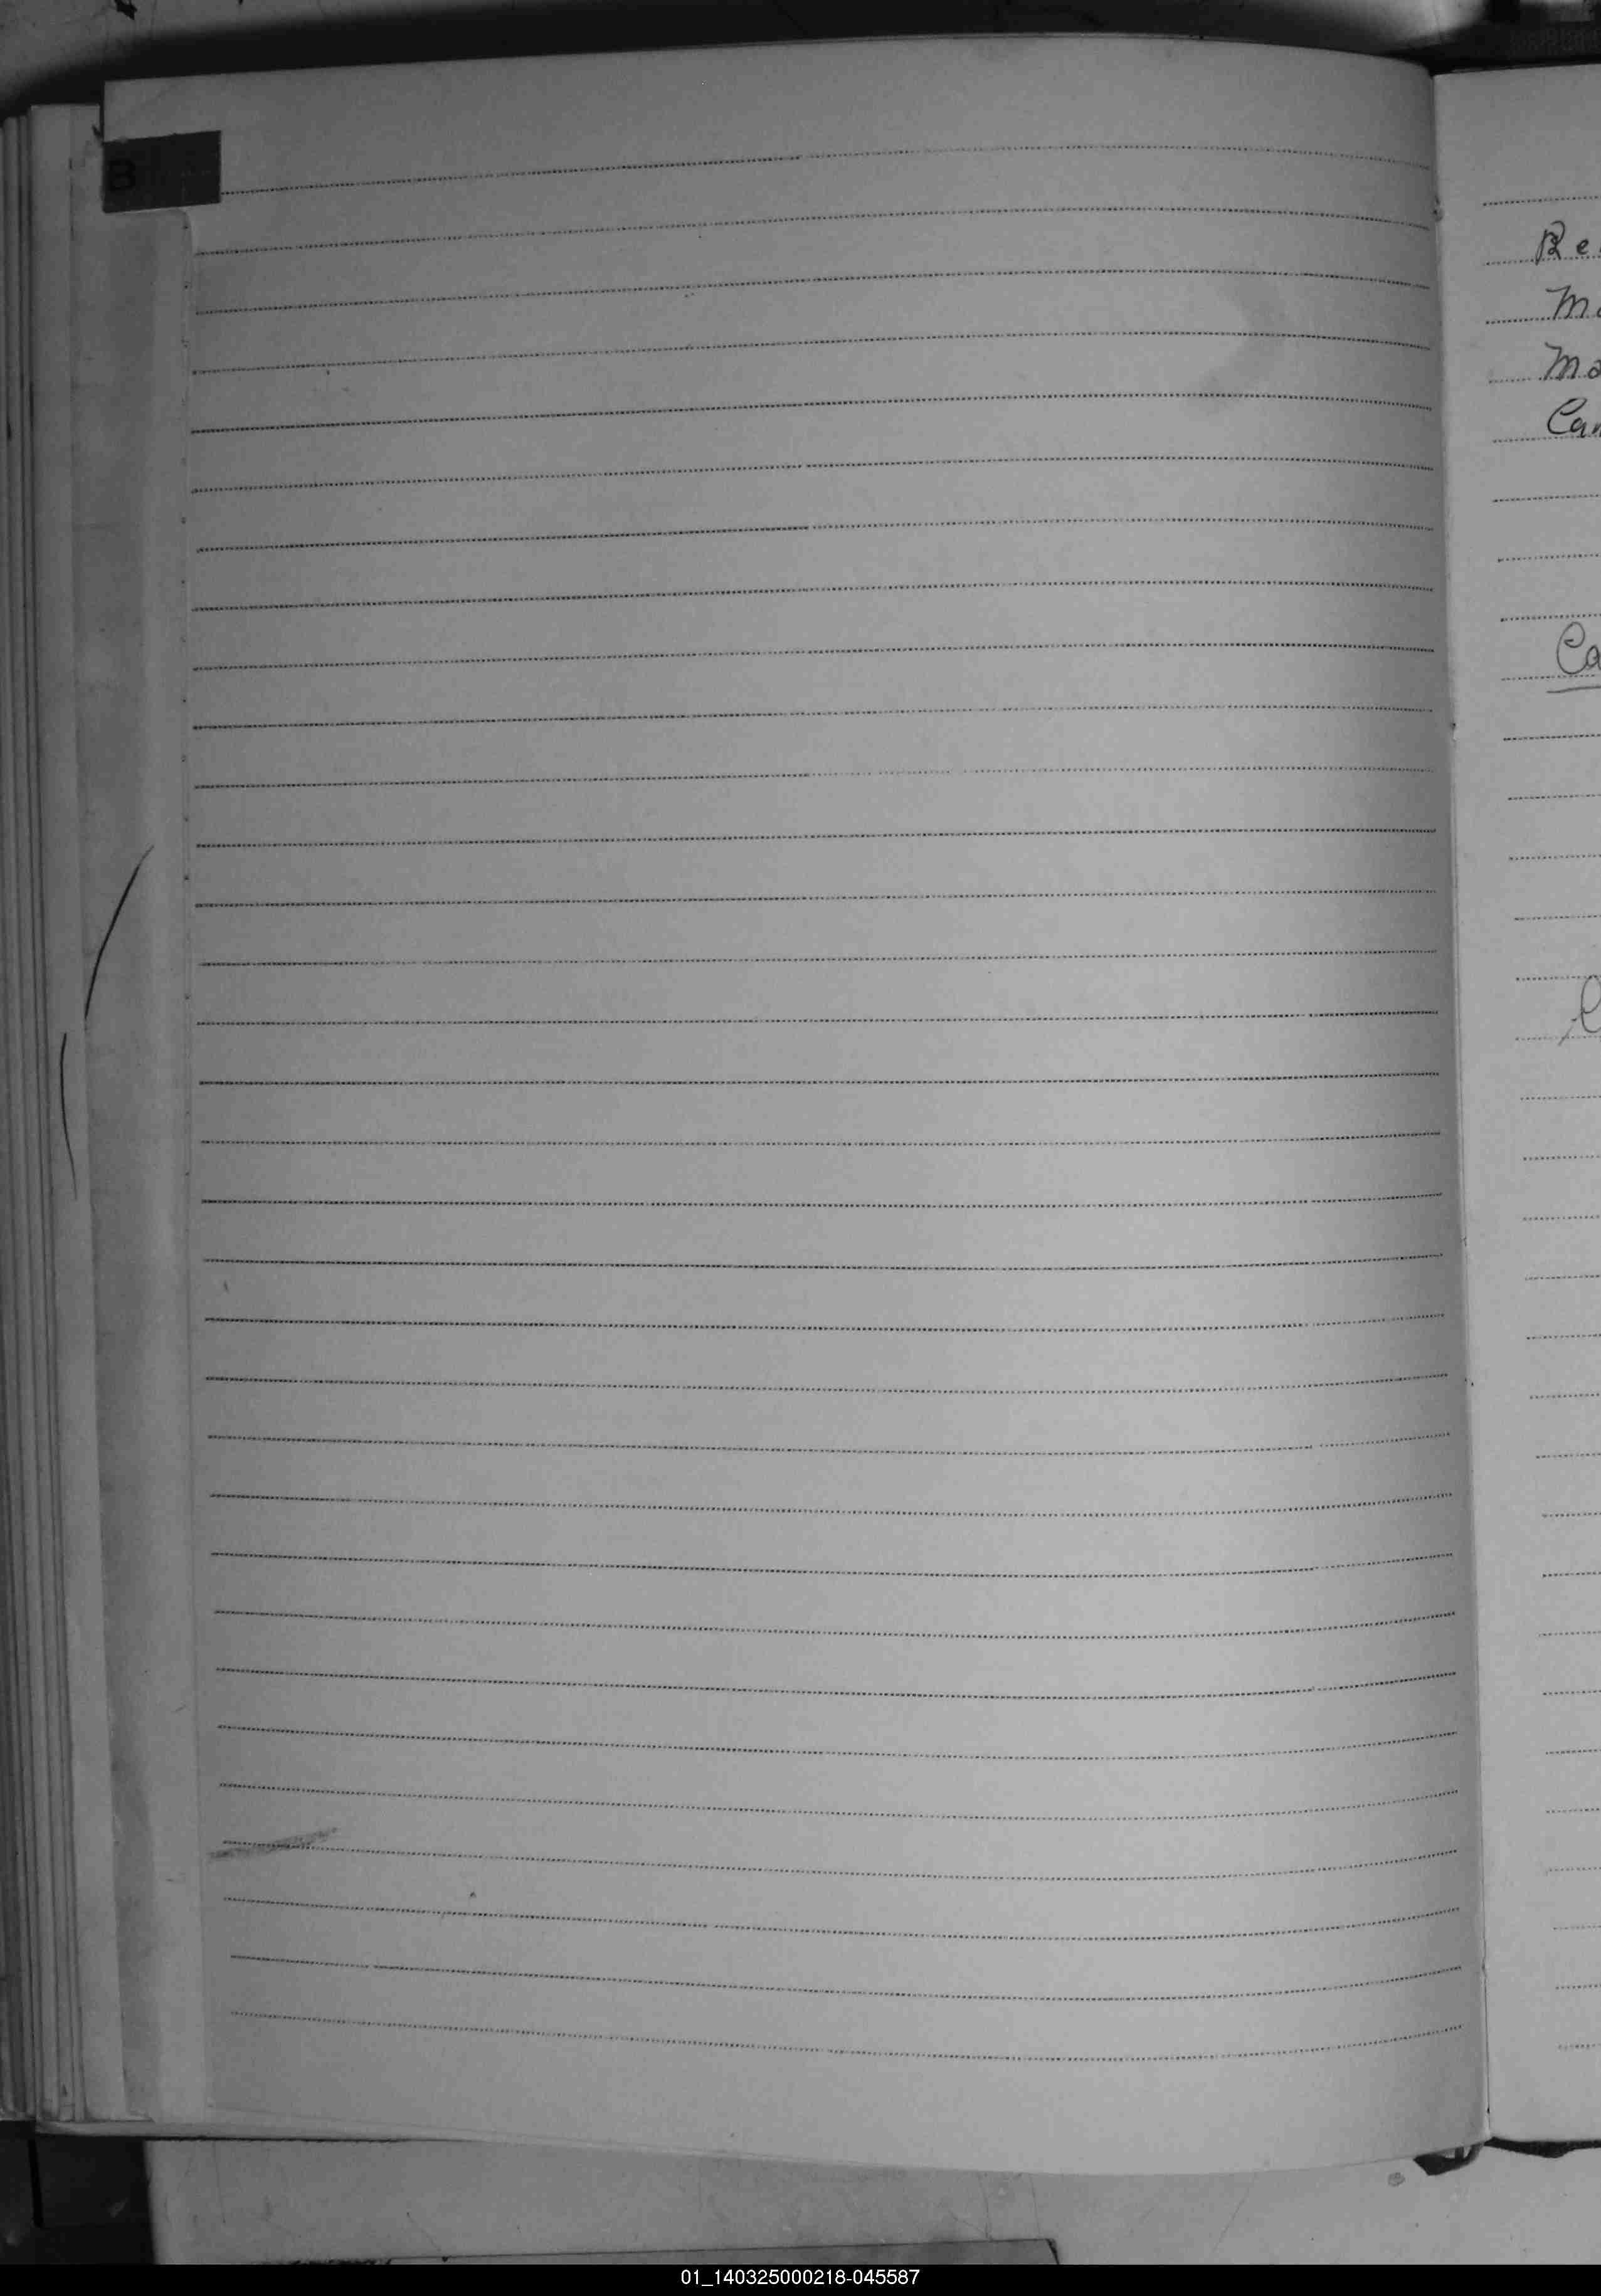 B
Be
Ma
Ma
Car
Ca
01_140325000218-045587